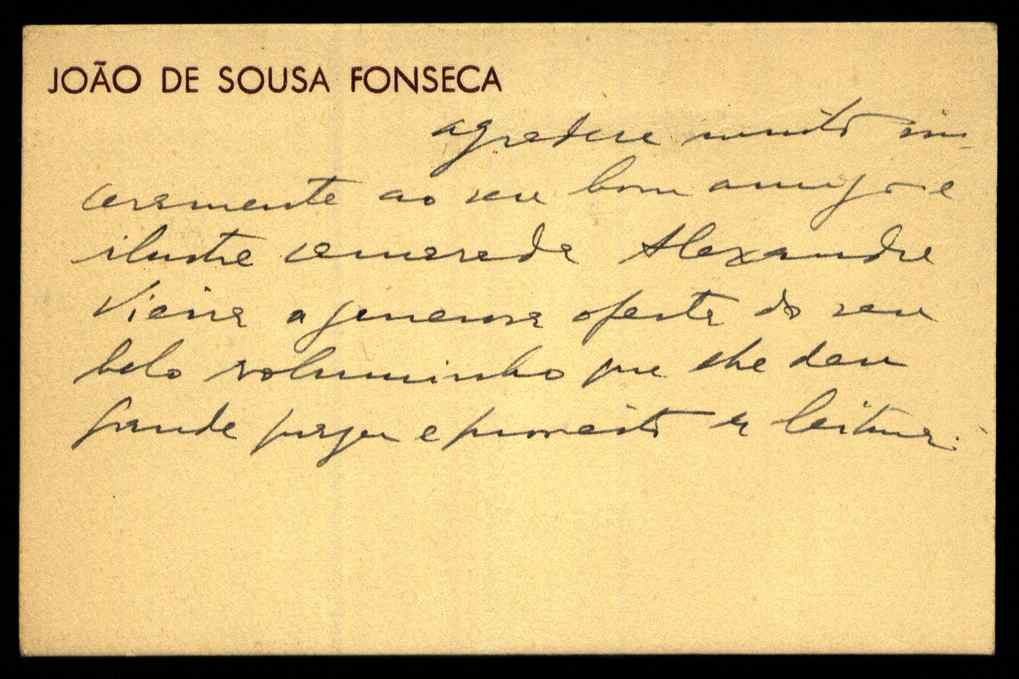 JOÃO DE SOUSA FONSECA
agradece muito sin-
ceramente ao seu bom amigo e
ilustre camarada Alexandre
Vieira a generosa oferta do seu
belo voluminho que lhe deu
grande prazer e proveito a leitura.